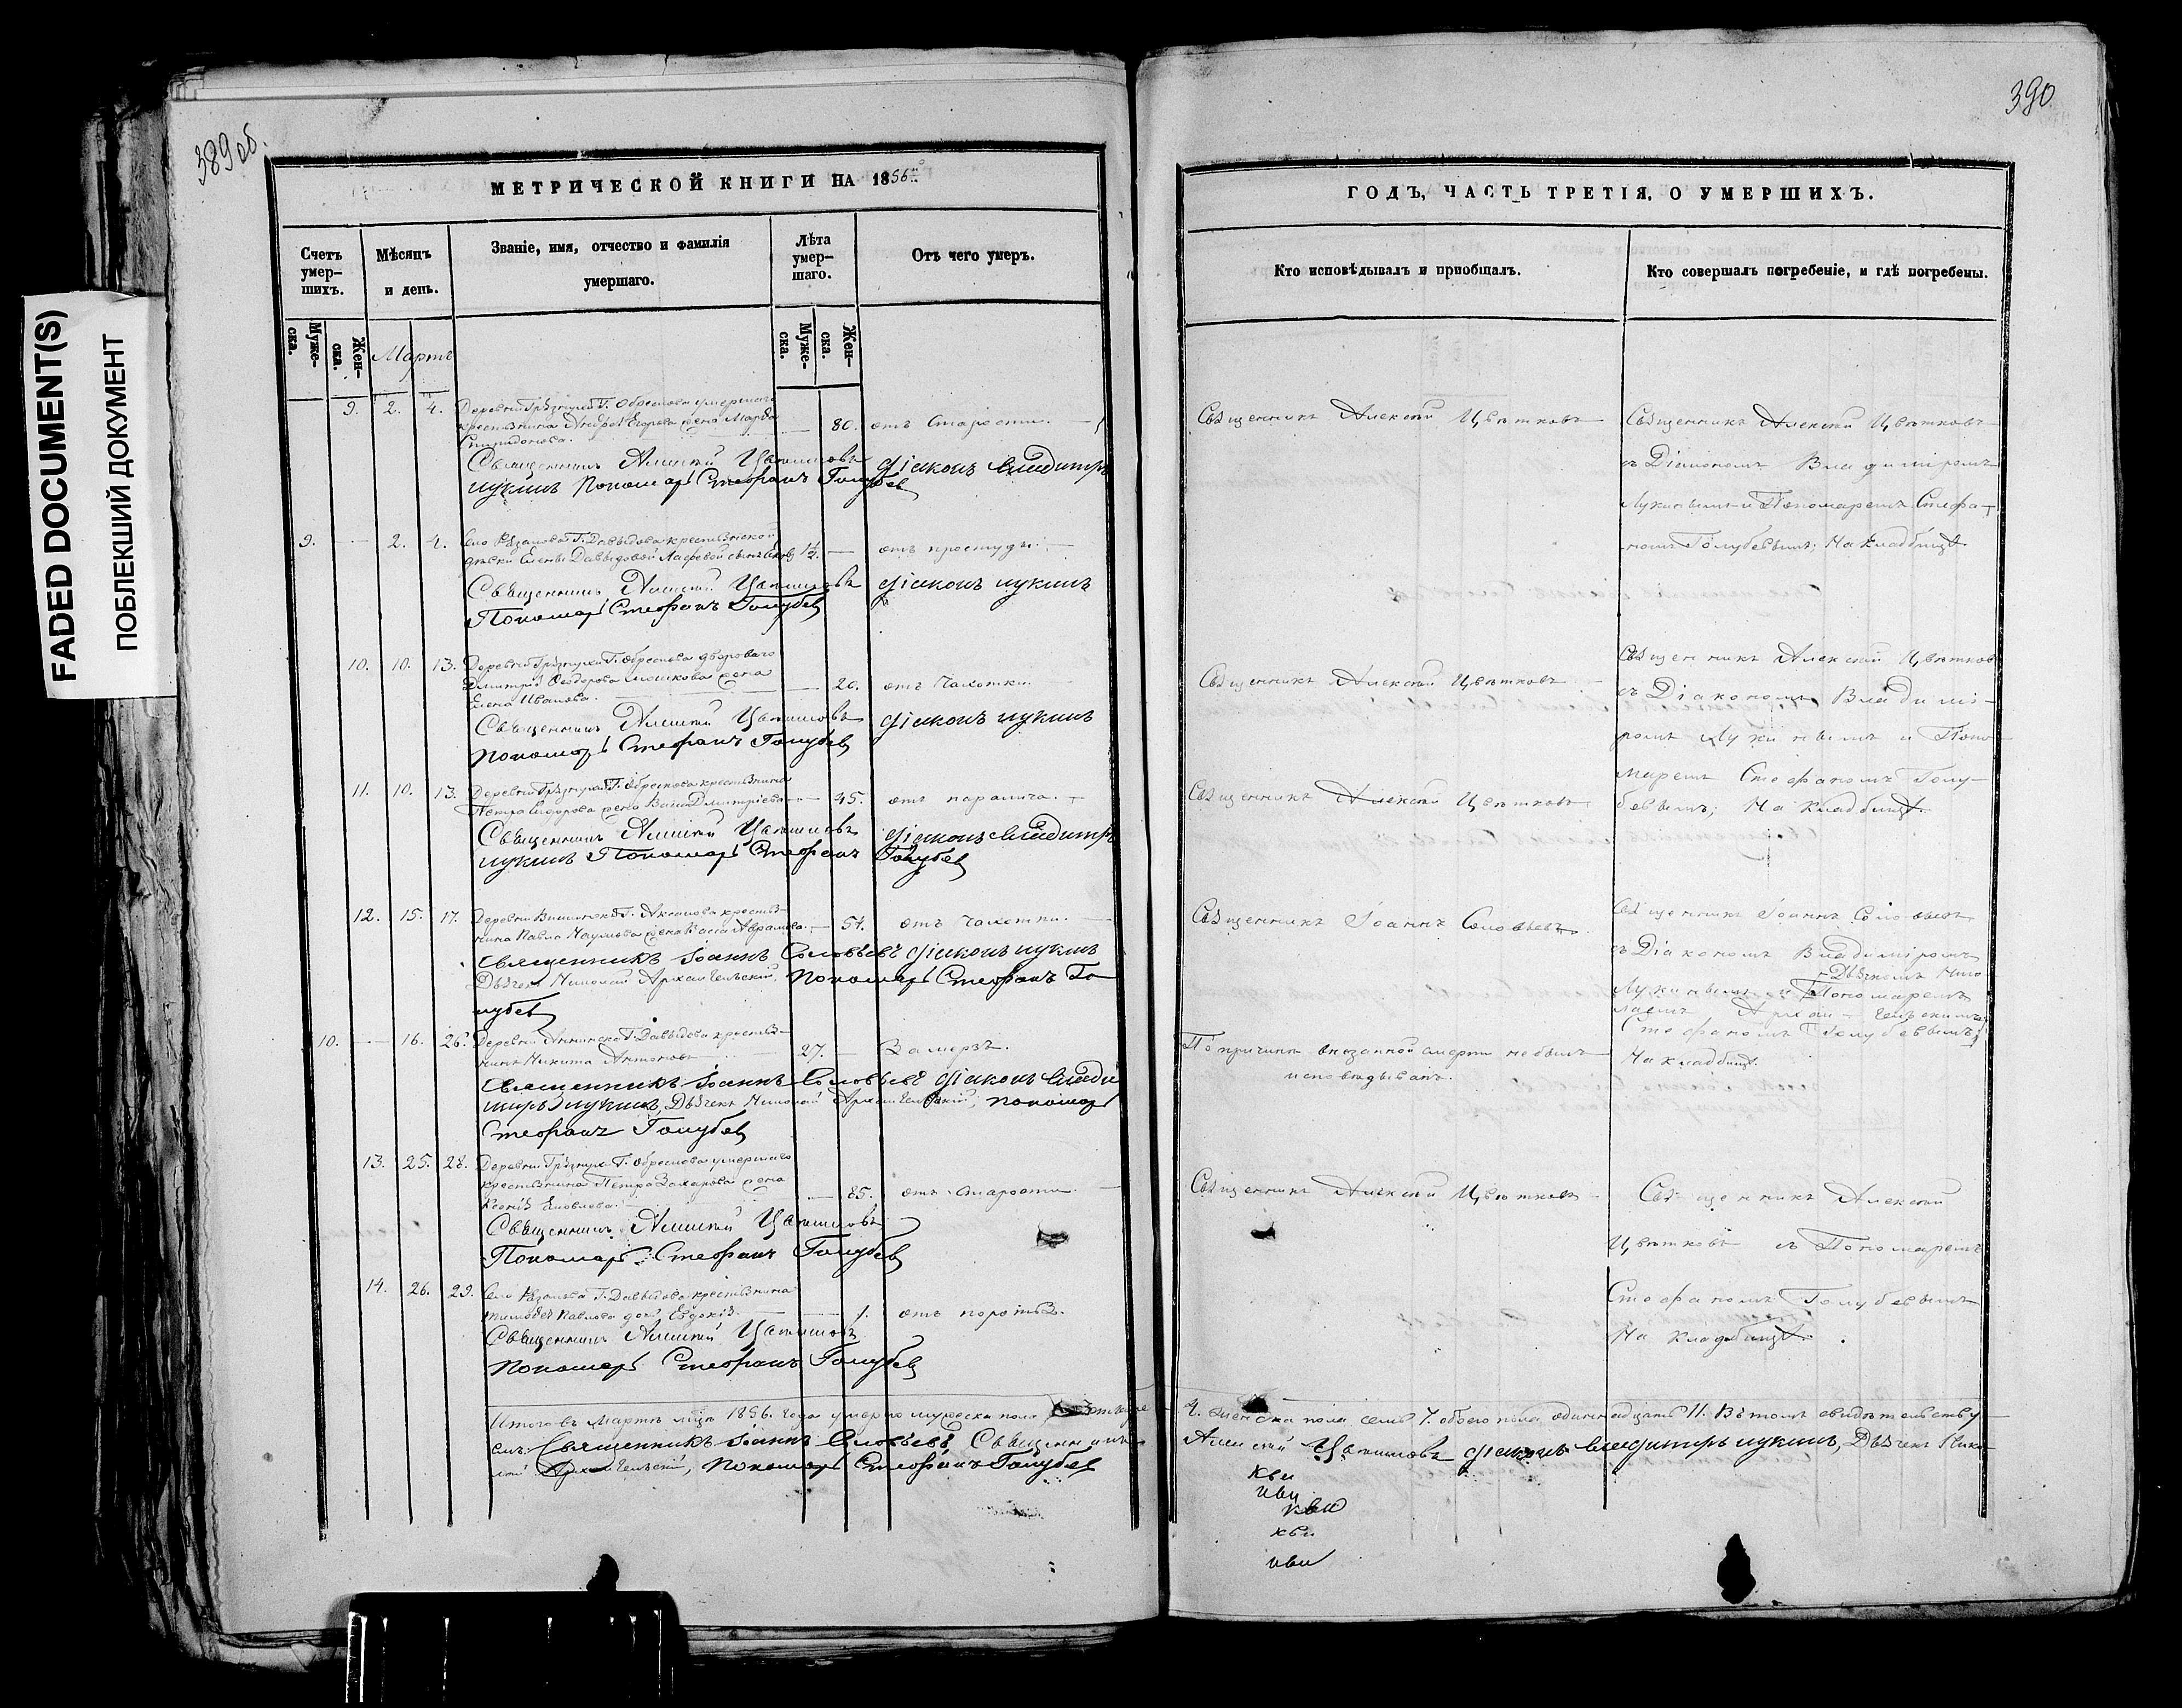 389 об.
390
FADED DOCUMENT(S)
ПОБЛЕКШИЙ ДОКУМЕНТ
МЕТРИЧЕСКОЙ КНИГИ НА 1856
Счетъ умер-шихъ.
Мѣсяцъ и день.
Званіе, имя, отчество и фамилія умершаго.
Лѣта умер-шаго.
Отъ чего умеръ.
Муже-ска.
Жен-ска.
Мартъ
Муже-ска.
Жен-ска.
9. 2. 4. Деревни Грѣзнухи Г. Обрескова умершаго
крестьянина Андрея Егорова жена Марѳа
Спиридонова. — 80. отъ Старости.
Священникъ Алексій Цвѣтковъ Діаконъ Владимиръ
Лукинъ Пономарь Стефанъ Голубев
9. — 2. 4. Село Г. Давыдова крестьянской
дѣвки Елены Давыдовой сынъ 1½. — отъ простуды.
Священникъ Алексій Цвѣтковъ Діаконъ Лукинъ
Пономарь Стефанъ Голубев
10. 10. 13. Деревни Грѣзнухи Г. Обрескова двороваго
Дмитрія Ѳедорова жена
Елена Иванова. — 20. отъ Чахотки.
Священникъ Алексій Цвѣтковъ Діаконъ Лукинъ
Пономарь Стефанъ Голубев
11. 10. 13. Деревни Грѣзнухи Г. Обрескова крестьянина
Петра жена Дмитріева — 45. отъ паралича.
Священникъ Алексій Цвѣтковъ Діаконъ Владимиръ
Лукинъ Пономарь Стефанъ Голубев
12. 15. 17. Деревни Г. крестья-
нина Павла Наумова жена Аврамова. — 54. отъ Чахотки.
Священникъ Іоаннъ Соловьевъ Діаконъ Лукинъ
Дьячекъ Николай Архангельскій, Пономарь Стефанъ Го
лубев
10. — 16. 26. Деревни Г. Давыдова крестья-
нинъ Никита Антоновъ 27. — Замерзъ.
Священникъ Іоаннъ Соловьевъ Діаконъ Влади
миръ Лукинъ, Дьячекъ Николай Архангельскій, Пономарь
Стефанъ Голубев
13. 25. 28. Деревни Грѣзнухи Г. Обрескова умершаго
крестьянина Петра Захарова жена
Ксенія Яковлева. — 85. отъ Старости.
Священникъ Алексій Цвѣтковъ
Пономарь Стефанъ Голубев
14. 26. 29. Село Г. Давыдова крестьянина
Тимоѳея Павлова дочь Евдокія. — 1. отъ
Священникъ Алексій Цвѣтковъ
Пономарь Стефанъ Голубев
Итого въ Мартѣ мцѣ 1856. года умерло мужеска пола
емъ: Священникъ Іоаннъ Соловьевъ, Священникъ
лай Архангельскій, Пономарь Стефанъ Голубев
ГОДЪ, ЧАСТЬ ТРЕТІЯ, О УМЕРШИХЪ.
Кто исповѣдывалъ и пріобщалъ.
Кто совершалъ погребеніе, и гдѣ погребены.
Священникъ Алексій Цвѣтковъ
Священникъ Алексій Цвѣтковъ
съ Діакономъ Владиміромъ
Лукинымъ и Пономаремъ Стефа-
номъ Голубевымъ; На кладбищѣ.
Священникъ Алексій Цвѣтковъ
Священникъ Алексій Цвѣтковъ
съ Діакономъ Владимі-
ромъ Лукинымъ и Поно-
маремъ Стефаномъ Голу-
бевымъ; На кладбищѣ.
Священникъ Алексій Цвѣтковъ
Священникъ Іоаннъ Соловьевъ.
Священникъ Іоаннъ Соловьевъ
съ Діакономъ Владиміромъ
Дьячкомъ Нико-
Лукинымъ и Пономаремъ
лаемъ Архан-гельскимъ
Стефаномъ Голубевымъ;
На кладбищѣ.
По причинѣ внезапной смерти не былъ
исповѣдыванъ.
Священникъ Алексій Цвѣтковъ
Священникъ Алексій
Цвѣтковъ съ Пономаремъ
Стефаномъ Голубевымъ
На кладбищѣ.
4. женска пола семь 7. обоего пола одиннадцать 11. Въ томъ свидѣтельству-
Алексій Цвѣтковъ Діаконъ Владимиръ Лукинъ, Дьячекъ Нико-